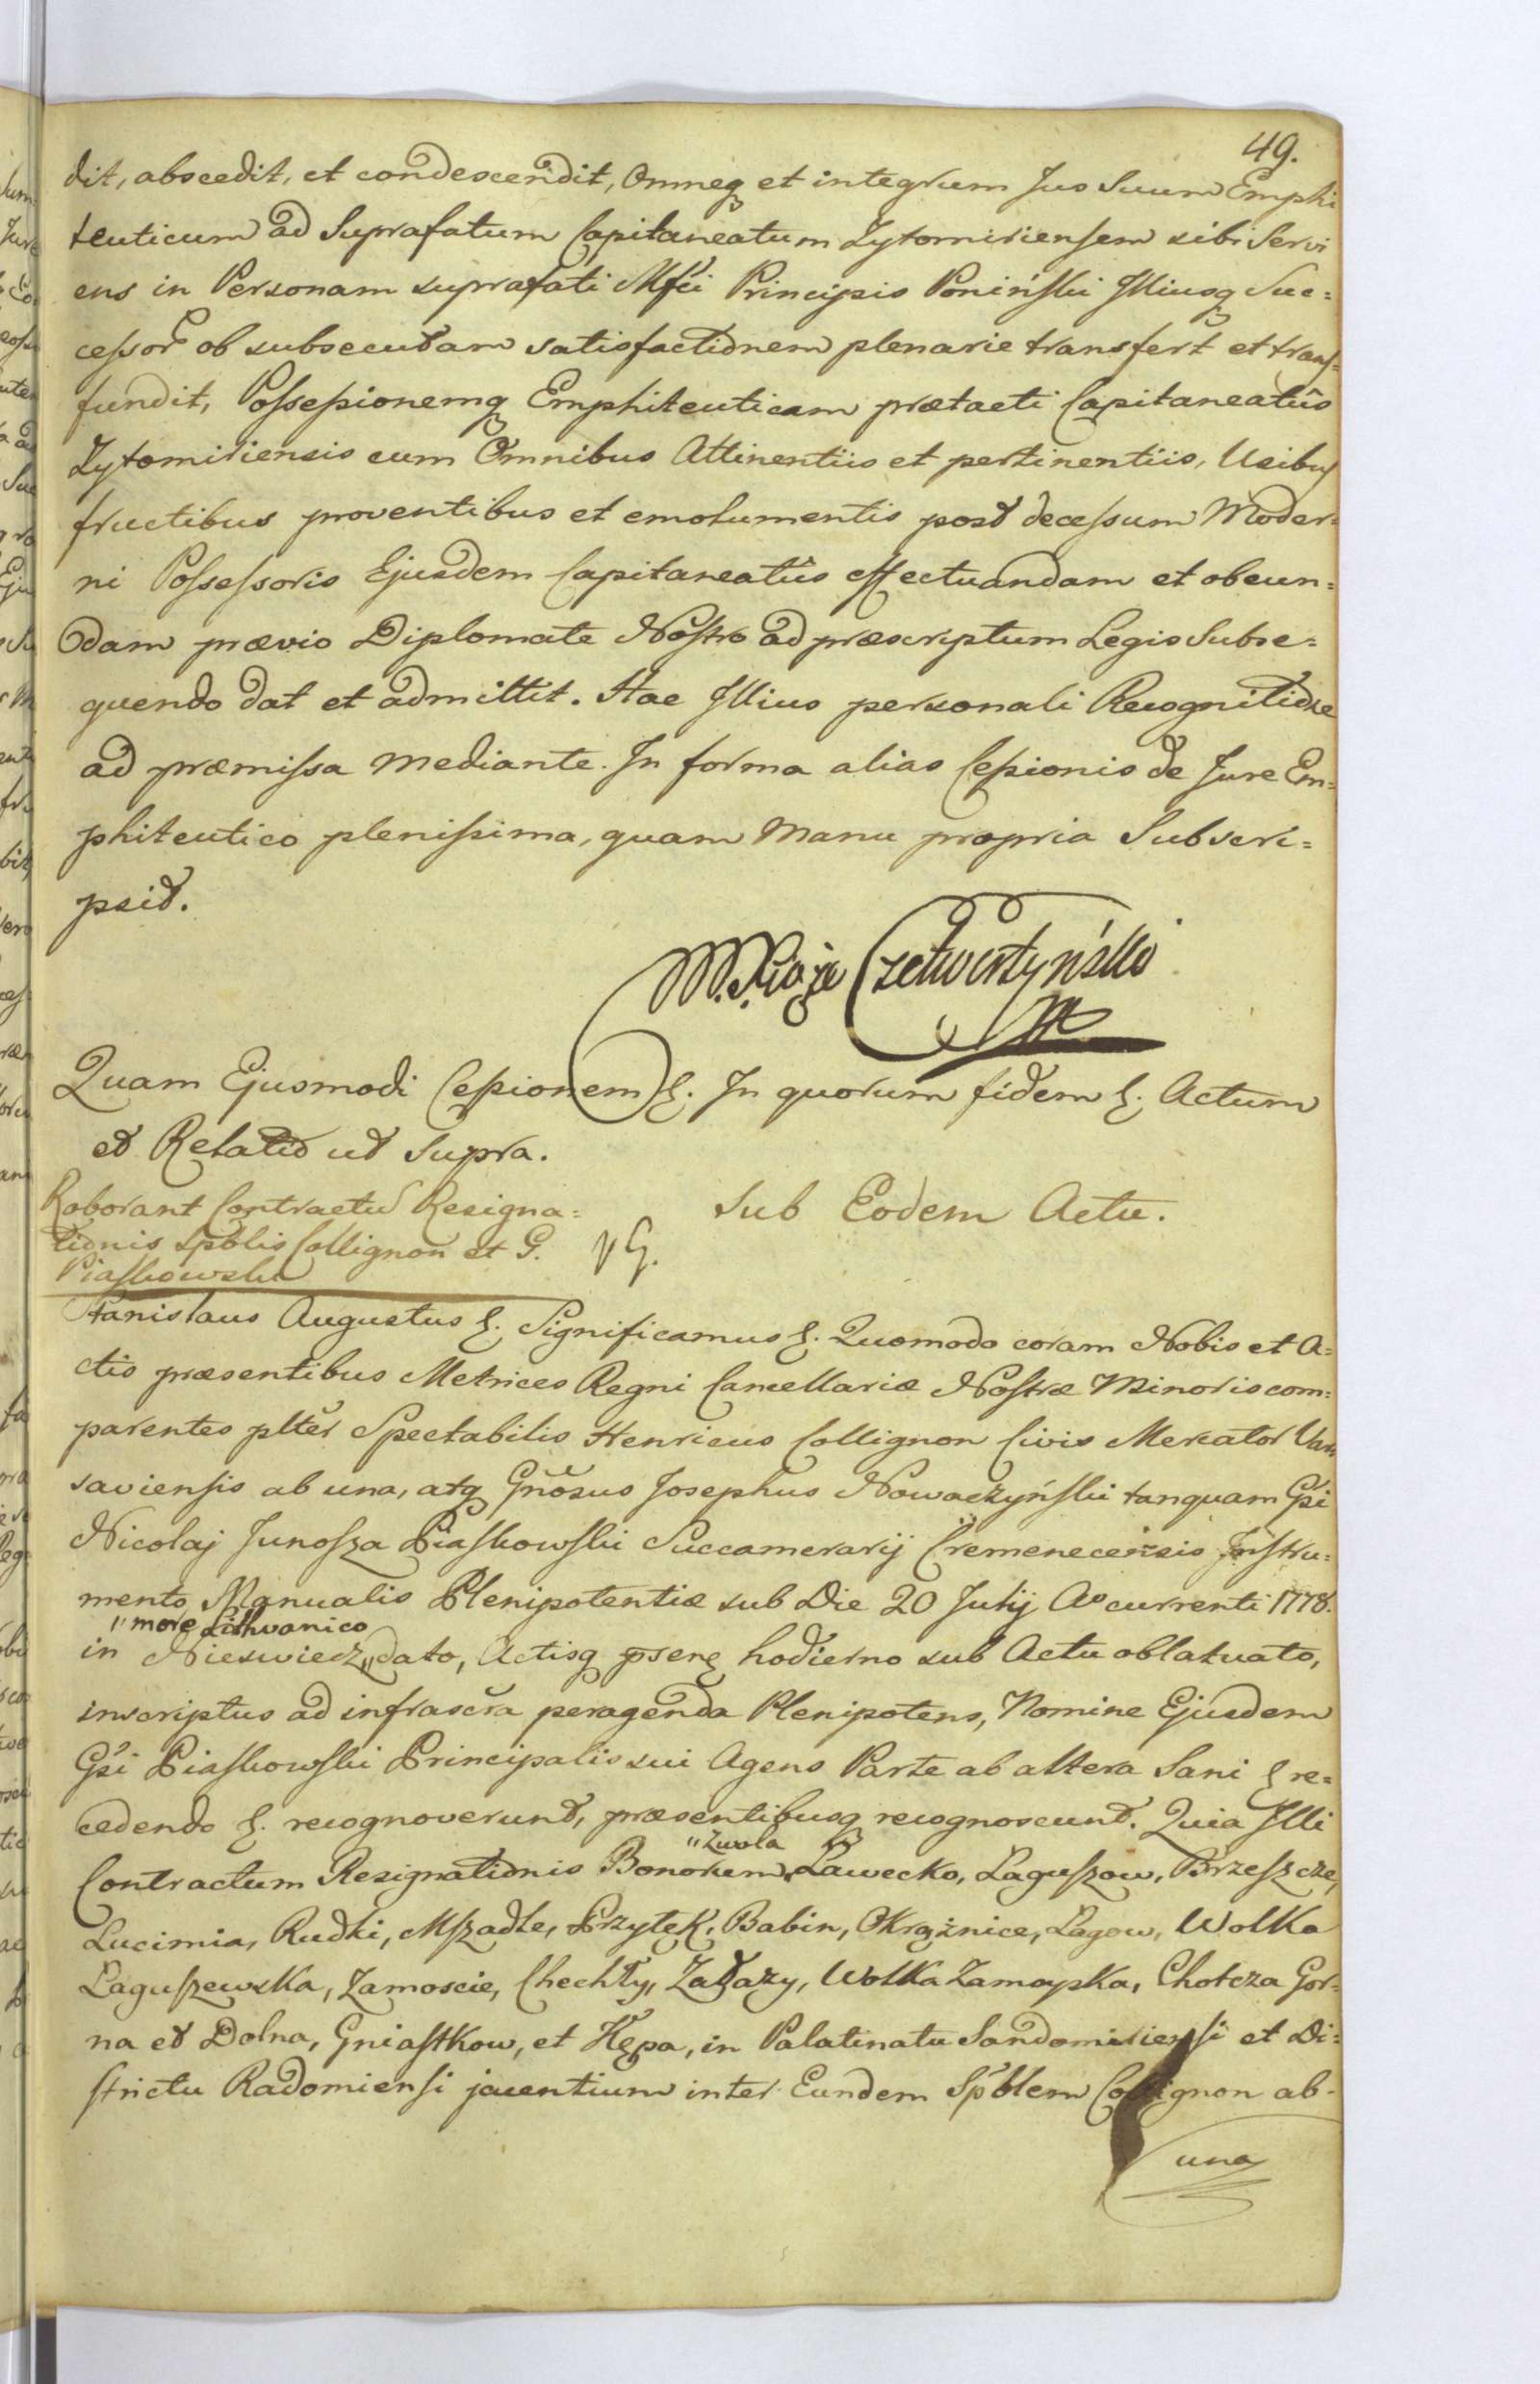 49.
dit, abscedit, et condescendit, Omneq et integrum Jus Suum Emphi
teuticum ad Suprafatum Capitaneatum Zytomiriensem sibi Servi
ens in Personam suprafati Mfci Principis Poniński Illiusq Suc=
cessor ob subsecutam satisfactionem plenarie transfert et trans=
fundit, Possessionemq Emphiteuticam prætacti Capitaneatûs
Zytomiriensis cum Omnibus Attinentiis et pertinentiis, Usibus
fructibus proventibus et emolumentis post decessum Moder=
ni Possessoris Ejusdem Capitaneatûs effectuandam et obeun=
dam prævio Diplomate Nostro ad præscriptum Legis Subse=
quendo dat et admittit. Hac Illius personali Recognitione
ad præmissa mediante. In forma alias Cessionis de Jure Em=
phiteutico plenissima, quam Manu propria Subscri=
psit.
Czetwertyński
Quam Ejusmodi Cessionem &. In quorum fidem &. Actum
et Relatio ut Supra.
Roborant Contractus Resigna=
tionis Spblis Collignon et G.
Piaskowski
Sub Eodem Actu.
Stanislaus Augustus &. Significamus &. Quomodo coram Nobis et A=
ctis præsentibus Metrices Regni Cancellariæ Nostræ Minoris com=
parentes plter Spectabilis Henricus Collignon Civis Mercator Var
saviensis ab una, atq Gnosus Josephus Nowaczyński tanquam Gsi
Nicolaj Junosza Piaskowski Succamerarij Cremenecensis Instru=
mento Manualis Plenipotentiæ sub Die 20 Julij Ao currenti 1778.
"more Lithvanico
in Nieswiez "dato, Actisq psenę hodierno sub Actu oblatuato,
inscriptus ad infrascra peragenda Plenipotens, Nomine Ejusdem
Gsi Piaskowski Principalis sui Agens Parte ab altera Sani & re=
cedendo &. recognoverunt, præsentibusq recognoscunt. Quia Illi
"Zwola
Contractum Resignationis Bonorum "Ławecko, Łaguszow, Brzeszcze,
Lucimia, Rudki, Mszadle, Przyłęk, Babin, Okrążnice, Łagow, Wolka
Łaguszewska, Zamoscie, Chechły, Załazy, Wolka Zamoyska, Chotcza Gor=
na et Dolna, Gniastkow, et Kępa, in Palatinatu Sandomiriensi et Di=
strictu Radomiensi jacentium inter Eundem Spblem Collignon ab-
una